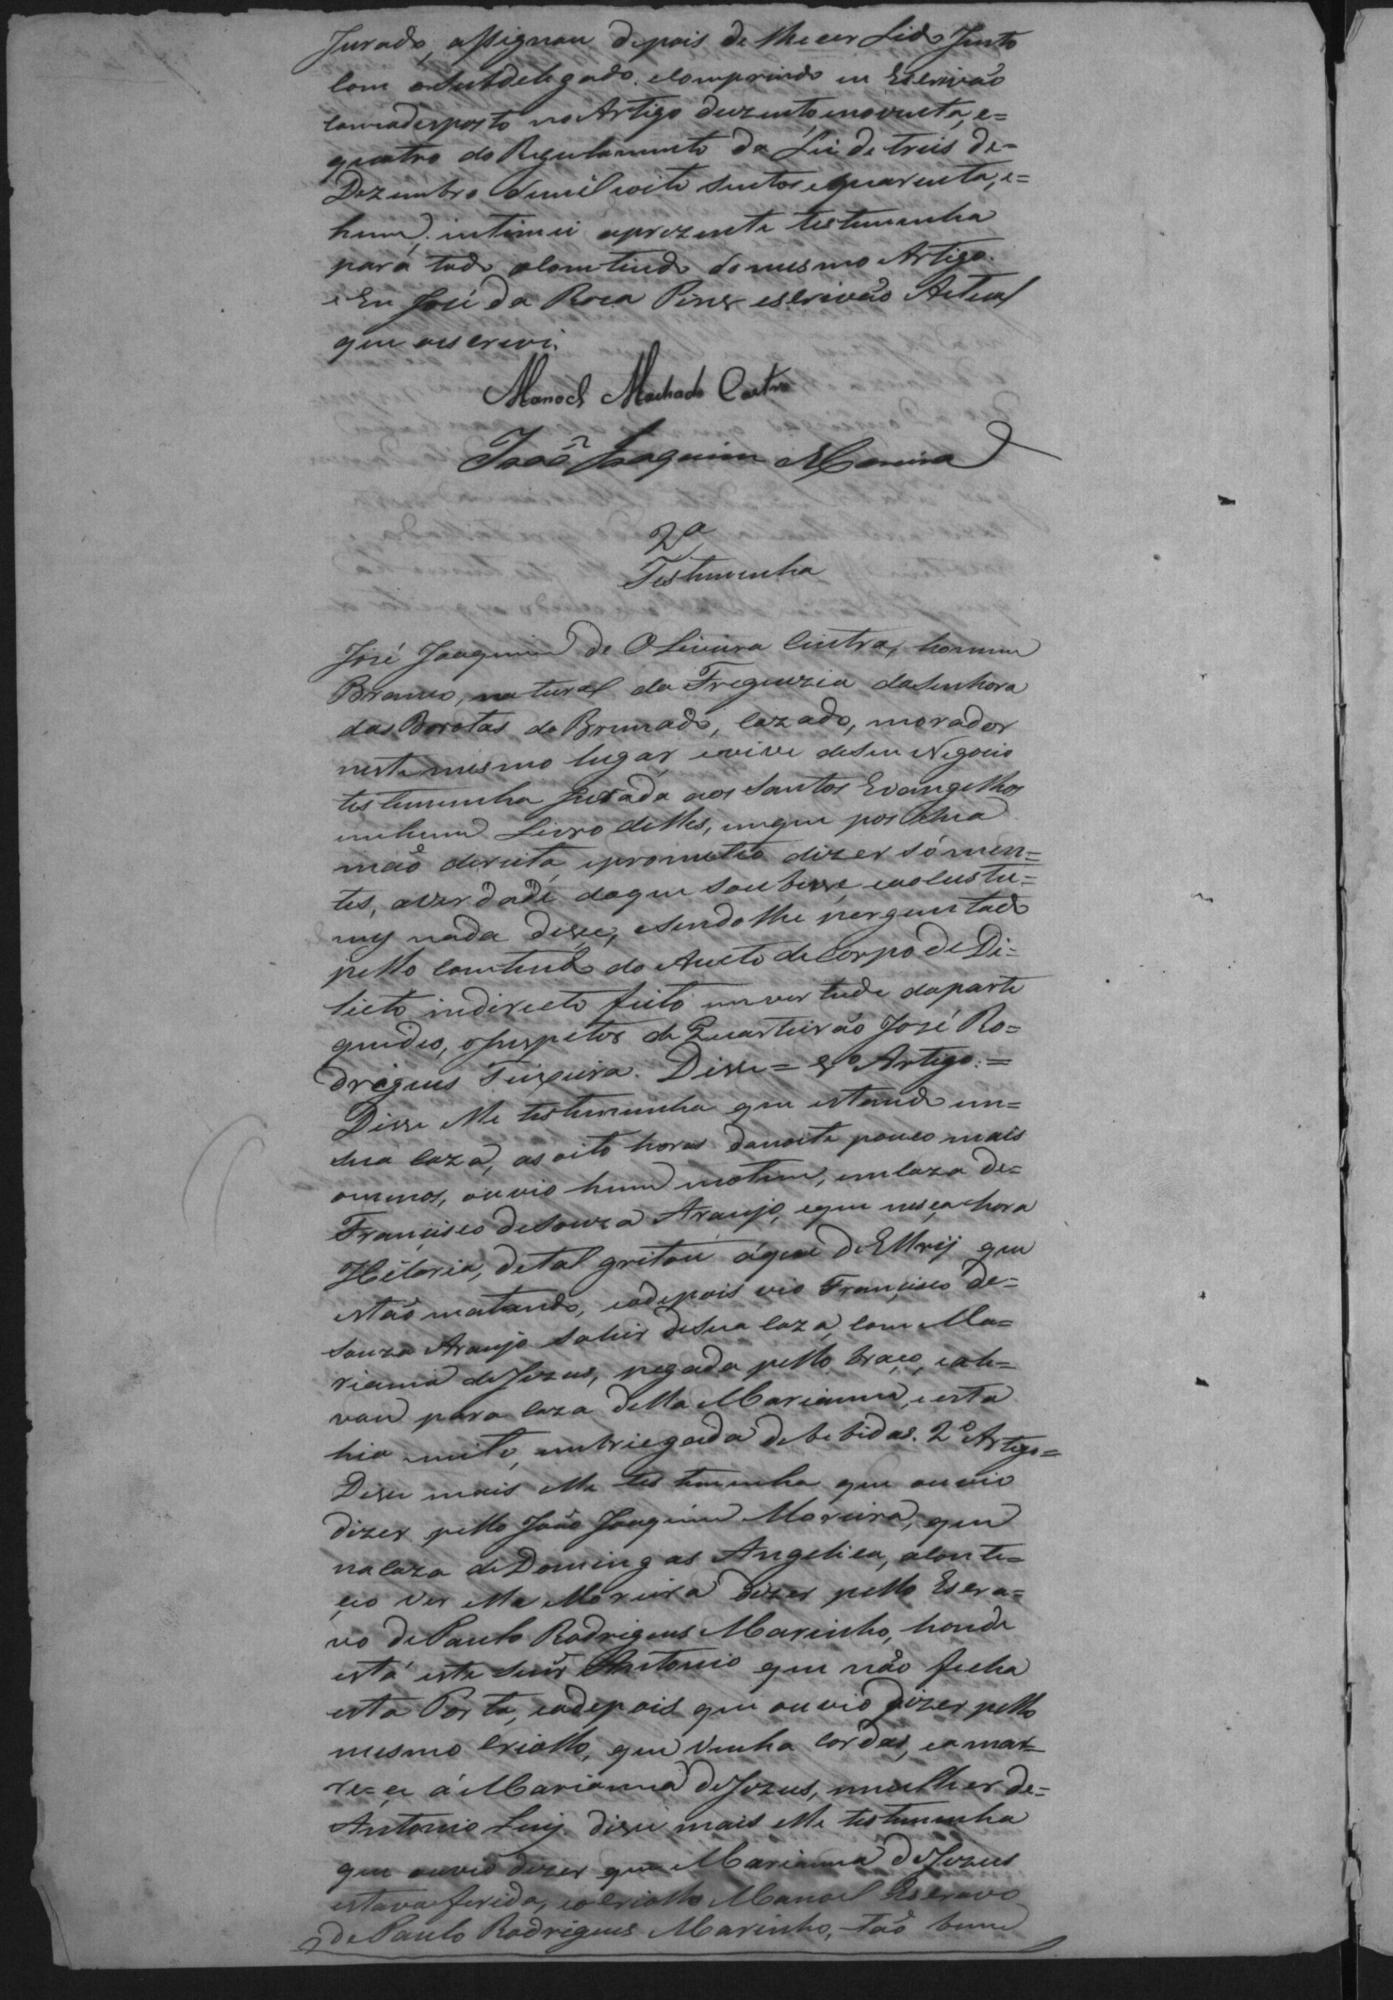 Jurado, assignou depois de lhe cer Lido Junto
com oSubdelegado. eComprindo eu Escrivão
comodisposto no Artigo duzentoenoventa, e=
quatro do Regulamento da Lei de treis de=
Dezembro demil oito Sentos equarenta, e=
hum, intimei aprezente testemunha
para todo oComtiudo domesmo Artigo.
e Eu José da Roca Pires escrivão Actual
que oescrevi.
Manoel Machado Castro
João Joaquim Moreira
2ª
Testemunha
José Joaquim de OLiveira Cintra, homem
Branco, natural da Freguezia daSenhora
das Borotas do Brumado, cazado, morador
neste mesmo lugar evive deSeu Negocio
testemunha Jurada aos Santos Evangelhos
emhum Livro delles, emque pos Sua
mão dereita, eprometeo dizer sómen=
tes, averdade doque Soubesse, eaoCustu=
mes nada disse, eSendolhe perguntado
pello Comteudo do Aucto deCorpo de Di=
licto indirecto feito emvertude daparte
quedeo, oInspetor de Quarteirão José Ro=
drigues Teixeira. Disse= 1º Artigo.=
Disse elle testemunha que estando em=
Sua Caza, as oito horas danoite pouco mais
oumenos, ouvio hum motim, emCaza de=
Francisco deSouza Araujo, eque nesçahora
Hitoria, detal gritou áque deElRij que
estão matando, eadepois vio Françisco de=
Souza Araujo Sahir deSua Caza, Com Ma=
rianna deJezus, pegada pello braço, eale=
vou para Caza della Marianna, eesta
hia muito, embriegada debebidas. 2º Artigo=
Disse mais elle testemunha que ouvio
dizer pello João Joaquim Moreira, que
naCaza deDomingas Angelica, aConte=
çio ver elle Moreira dizer pello Escra=
vo dePaulo Rodrigues Marinho, honde
está este Senr Antonio que não fecha
esta Porta, eadepois que ouvio dizer pello
mesmo Criollo, que venha Cordas, eamar=
re-ce á Marianna deJezus, mulher de=
Antonio Luij disse mais elle testemunha
que ouvio dizer que Marianna deJezus
estava ferida, eoCriollo Manoel Escravo
de Paulo Rodrigues Marinho, tão bem